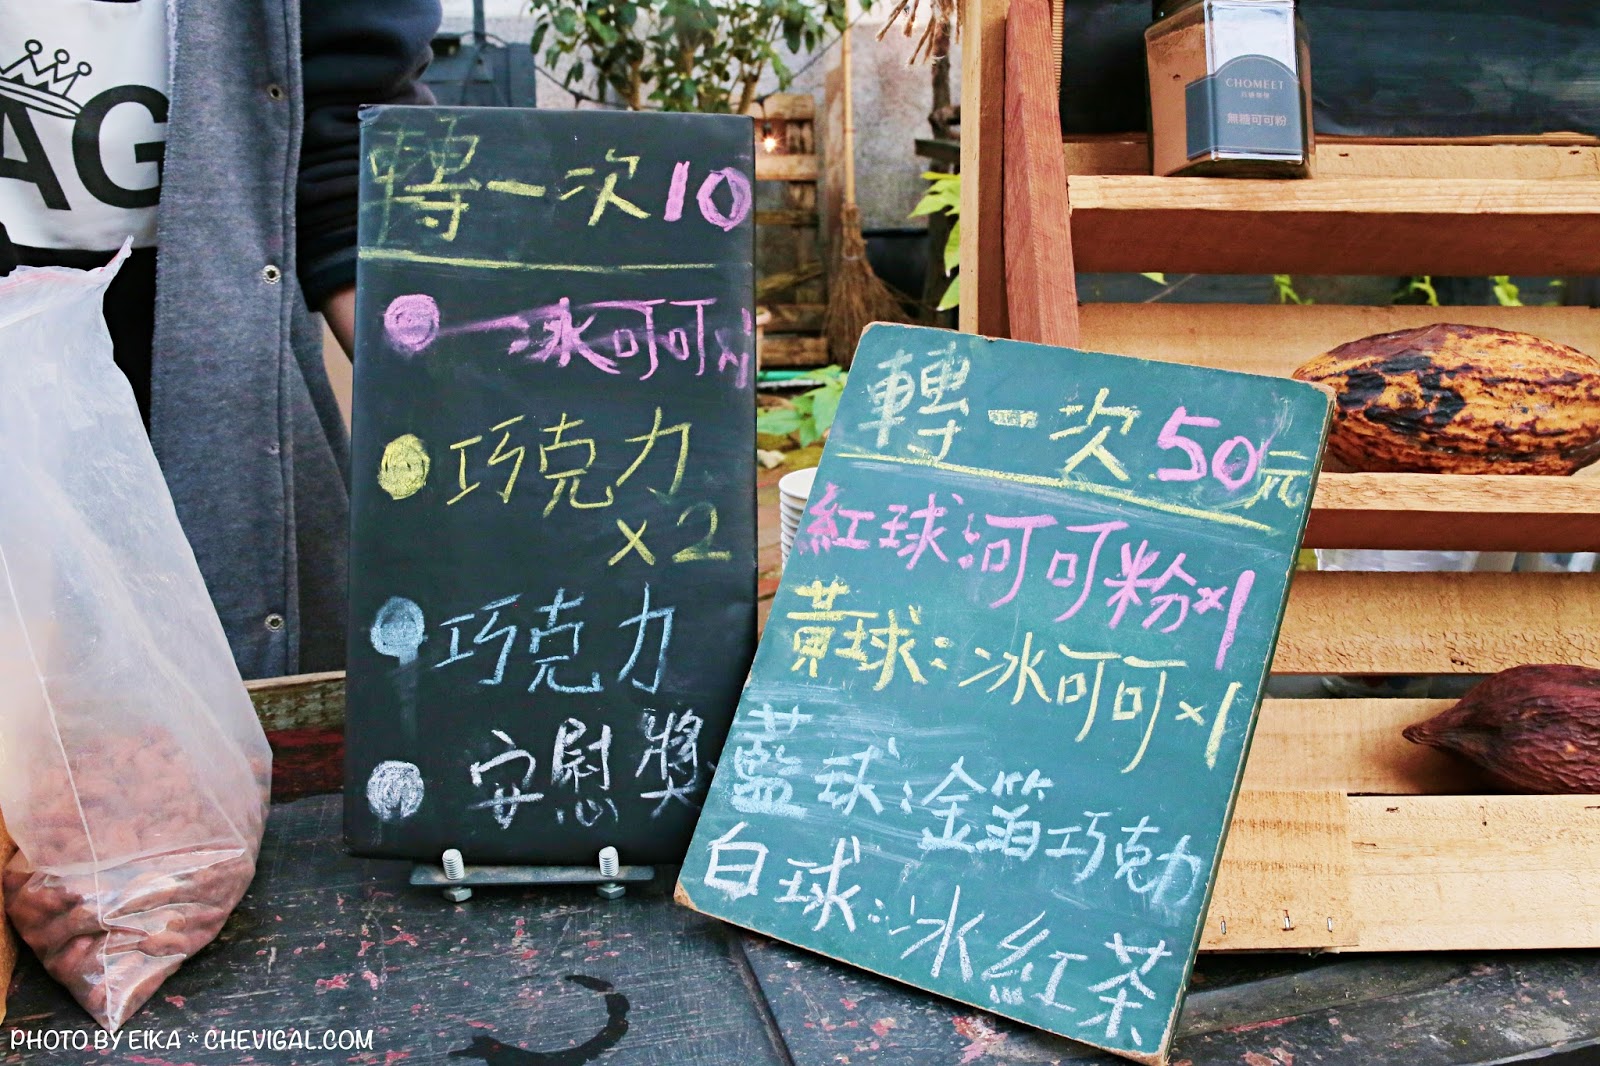 AG
轉一次10
冰可可x1
巧克力
x2
巧克力
安慰獎
轉一次50元
紅球:可可粉x1
黃球:冰可可x1
藍球:金箔巧克力
白球:冰紅茶
CHOMEET
無糖可可粉
PHOTO BY EIKA * CHEVIGAL.COM